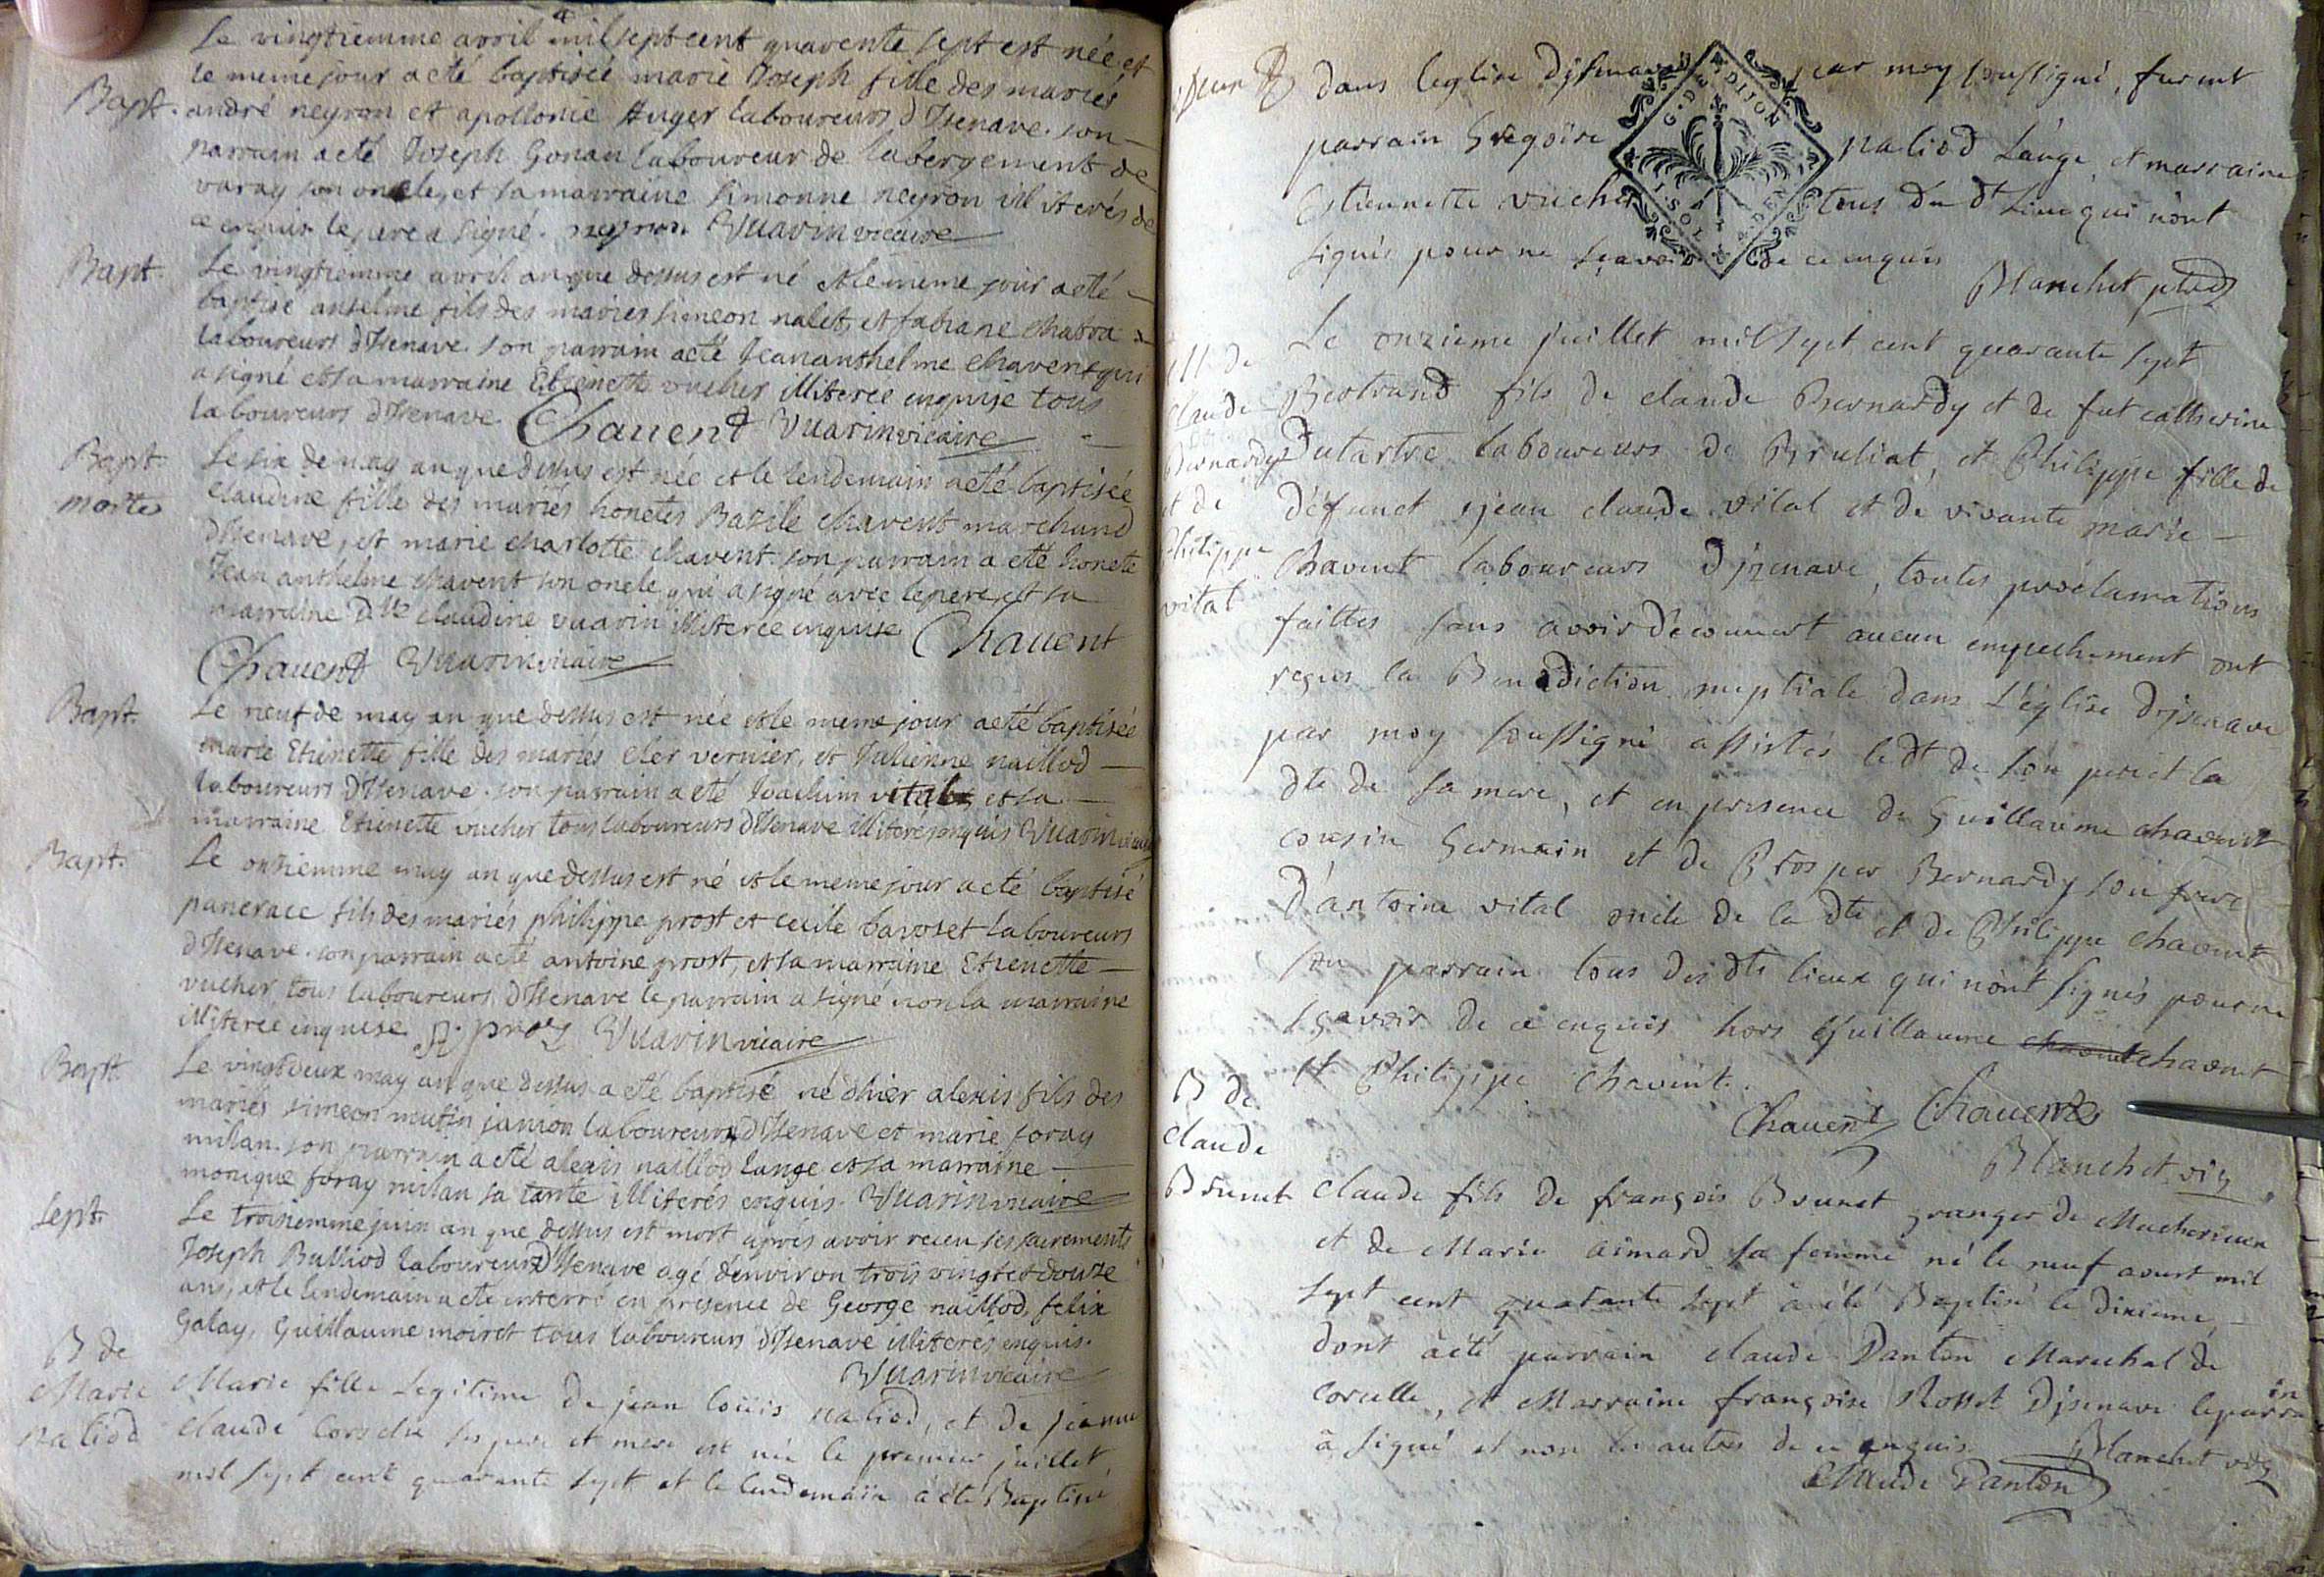 Le vingtiemme avril mil sept cent quarente sept est née et
le meme jour a eté baptiseé marie Joseph fille des mariés
Bapt. andré neyron et apollonie Auger laboureurs d'Isenave. son
parrain a eté Joseph Gonan laboureur de labergement de
varay son oncle, et sa marraine simonne neyron illiterés de
ce enquis le pere a signé. neyron Vuarin vicaire
Bapt. Le vingtiemme avril an que dessus est né et le meme jour a eté
baptisé anselme fils des mariés simeon nalet, et fabiane chatra
laboureurs d'Isenave. son parrain a eté Jean anthelme chavent qui
a signé et sa marraine Etienette vucher illiterée enquise tous
laboureurs d'Isenave. Chavent Vuarin vicaire
Bapt. Le six de may an que dessus est née et le lendemain a eté baptisée
morte claudine fille des mariés honetes Bazile chavent marchand
d'Isenave, et marie charlotte chavent. son parrain a eté honete
Jean anthelme chavent son oncle qui a signé avec le pere, et sa
marraine dlle claudine vuarin illiterée enquise Chavent
Chavent Vuarin vicaire
Bapt. Le neuf de may an que dessus est née et le meme jour a eté baptisée
marie Etienette fille des mariés cler vernier, et Julienne naillod
laboureurs d'Isenave. son parrain a eté Joachim vital et sa
marraine Etienette vucher tous laboureurs d'Isenave illiterés enquis Vuarin vicaire
Bapt. Le onziemme may an que dessus est né et le meme jour a eté baptisé
pancrace fils des mariés philippe prost et cecile bavoset laboureurs
d'Isenave. son parrain a eté antoine prost, et sa marraine Etienette
vucher tous laboureurs d'Isenave le parrain a signé non la marraine
illiterée enquise Vuarin vicaire
Bapt. Le vingt deux may an que dessus a eté baptisé né d'hier alexis fils des
mariés simeon mutin janion laboureurs d'Isenave et marie foray
milan. son parrain a eté alexis naillod lange et sa marraine
monique foray milan sa tante illiterés enquis. Vuarin vicaire
Sept. Le troisiemme juin an que dessus est mort aprés avoir receu ses sacrements
Joseph Bulliod laboureur d'Isenave agé d'environ trois vingt et douze
ans, et le lendemain a eté enterré en presence de George naillod, felix
Galay, Guillaume moiret tous laboureurs d'Isenave illiterés enquis.
Vuarin vicaire
B de
Marie Marie fille Legitime de jean loüis naliod, et de jeanne
naliod claude ses pere et mere est née le premier juillet
mil sept cent quarante sept et le lendemain à été Baptisé
dans leglise d'jsenave par moy soussigné, furent
parrain Gregoire naliod Lange et marraine
Estiennette vucher tous du dt Lieu qui n'ont
signés pour ne sçavoir de ce enquis
Blanchet
G. DE DIJON
Le onzieme juillet mil sept cent quarante sept
M de
claude Bertrand fils de claude Bernardy et de fut catherine
Bernardy Dutartre laboureurs de Bruliat, et Philippe fille de
et de defunct jean claude vital et de vivante marie
Philippe Chavent laboureurs d'jzenave, toutes proclamations
vital faittes sans avoir découvert aucun empechement ont
reçus la Benediction nuptiale dans L'église d'jsenave
par moy soussigné assistés ledt de son pere et la
dte de sa mere, et en presence de Guillaume chavent
cousin Germain et de Prosper Bernardy son frere
d'antoine vital oncle de la dte et de Philippe chavent
son parrain tous des dts lieux qui n'ont signés pour ne
sçavoir de ce enquis hors Guillaume chavent
et Philippe Chavent.
Chavent Chavent
Blanchet vic
B de
claude
Brunet claude fils de françois Brunet granger de Macherieux
et de Marie aimard sa femme né le neuf aoust mil
sept cent quarante sept à été Baptisé le dixieme,
dont à été parrain claude Danton Marechal de
corcelle, et Marraine françoise Rosset d'jsenave le parrain
à signé et non les autres de ce enquis. Blanchet vic
Claude Danton